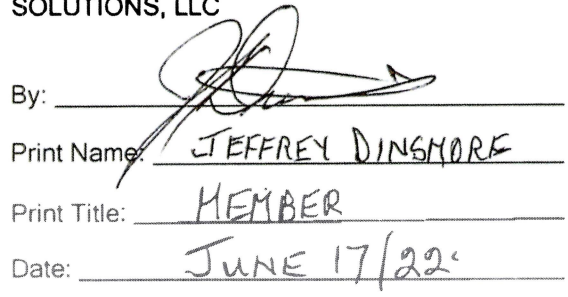 SOLUTIONS, LLC
By:
Print Name: JEFFREY DINSMORE
Print Title: MEMBER
Date: JUNE 17/22